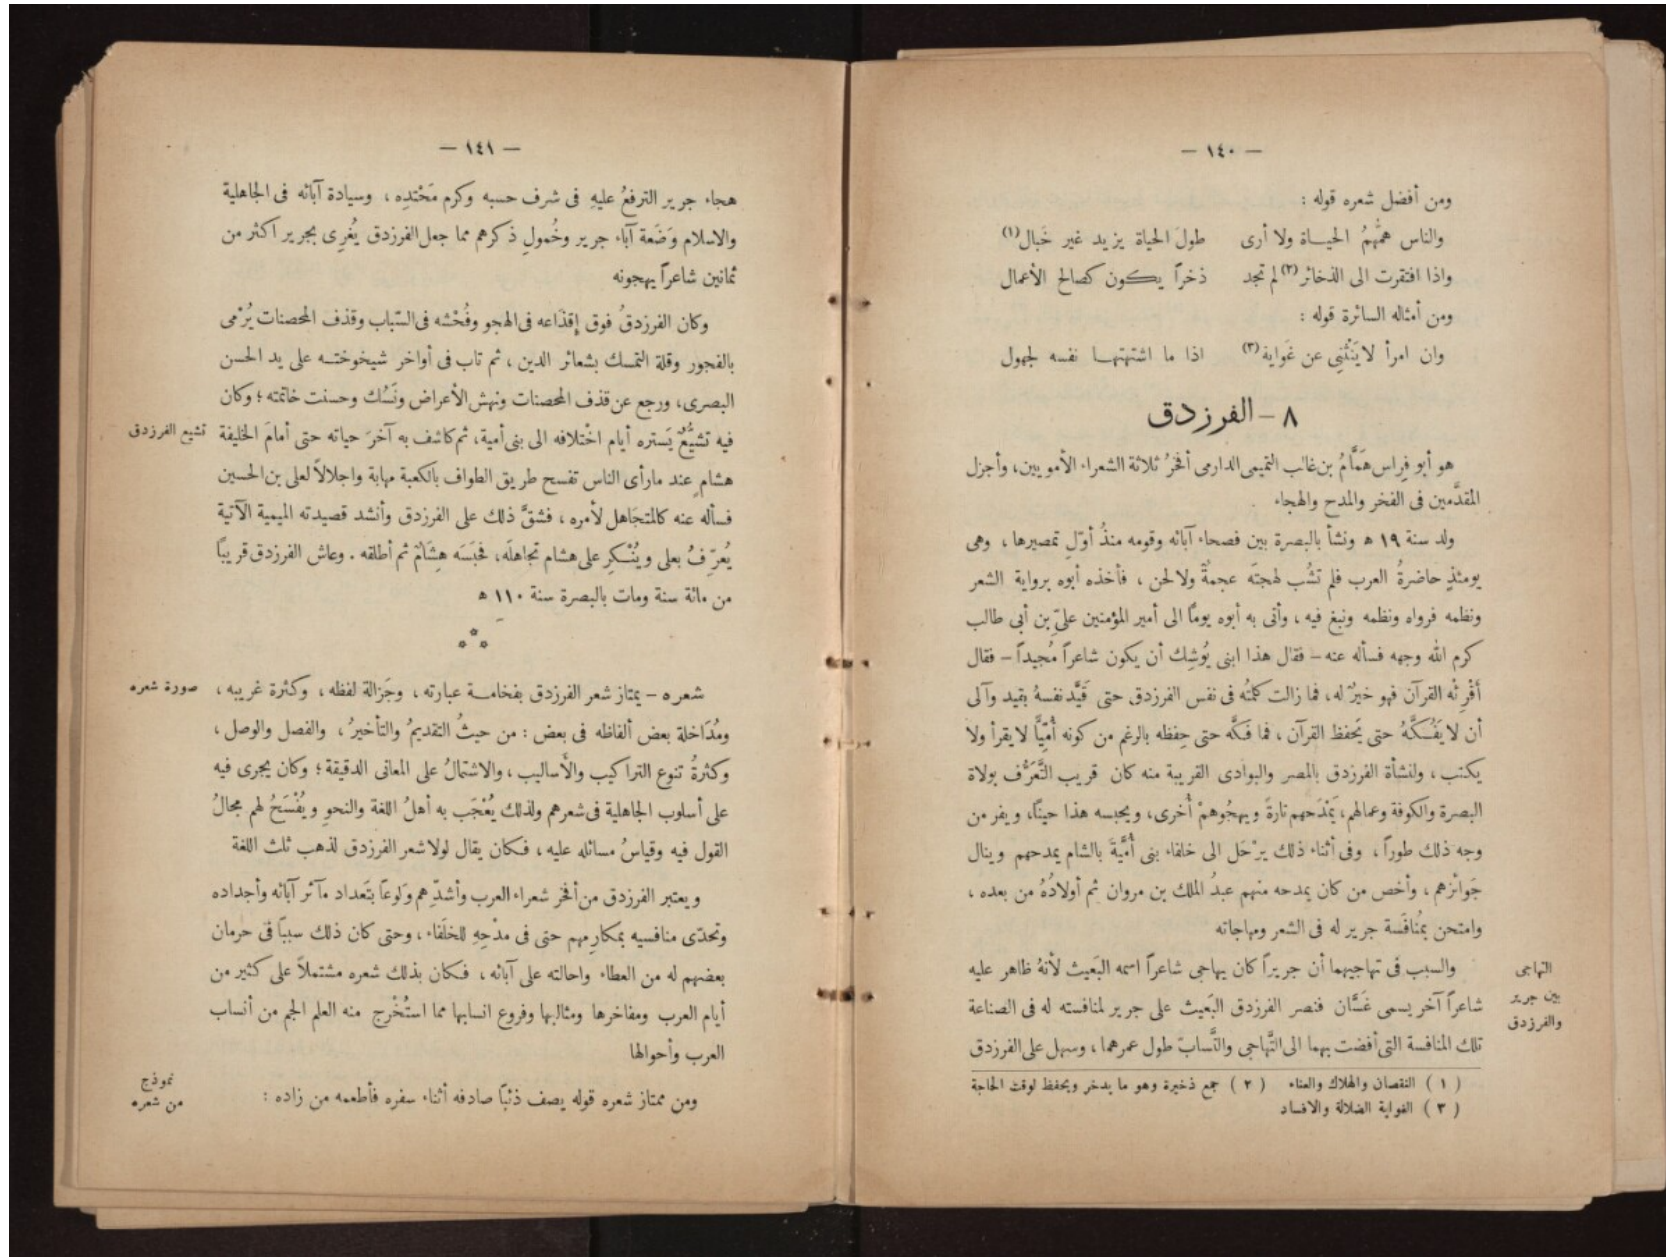 — ١٤٠ —
ومن أفضل شعره قوله :
والناس همُّهمُ الحياة ولا أرى طولَ الحياة يزيد غير خَبال (١)
واذا افتقرت الى الذخائر (٢) لم تجد ذخراً يكون كصالح الأعمال
ومن أمثاله السائرة قوله :
وان امرأ لا يَنْثنِى عن غَواية (٣) اذا ما اشتهتها نفسه لجهول
٨ – الفرزدق
هو أبو فِراس هَمَّامُ بن غالب التميمى الدارمى أفخرُ ثلاثة الشعراء الأمويين، وأجزل
المقدَّمين فى الفخر والمدح والهجاء
ولد سنة ١٩ ھ ونشأ بالبصرة بين فصحاء آبائه وقومه منذُ أوّلِ تمصيرها ، وهى
يومئذٍ حاضرةُ العرب فلم تشُب لهجتَه عجمةٌ ولا لحن ، فأخذه أبوه برواية الشعر
ونظمه فرواه ونظمه ونبغ فيه ، وأتى به أبوه يوماً الى أمير المؤمنين علىّ بن أبى طالب
كرم الله وجهه فسأله عنه – فقال هذا ابنى يُوشِك أن يكون شاعراً مُجيداً – فقال
أَقْرِئْه القرآن فهو خيرٌ له، فما زالت كلمتُه فى نفس الفرزدق حتى قَيَّد نفسهُ بقيد وآلى
أن لا يَفُكَّهُ حتى يَحفظ القرآن ، فما فَكَّه حتى حِفظه بالرغم من كونه أُمِّيًّا لا يقرأ ولا
يكتب ، ولنشأة الفرزدق بالمصر والبوادى القريبة منه كان قريب التَّعَرُّف بولاة
البصرة والكوفة وعمالهم، يَمْدَحهم تارةً ويهجُوهمْ أُخرى، ويحبسه هذا حينًا، ويفر من
وجه ذلك طوراً ، وفى أثناء ذلك يرْحَل الى خلفاء بنى أُمَيَّةَ بالشام يمدحهم وينال
جَوائزهم ، وأخص من كان يمدحه منهم عبدُ الملك بن مروان ثم أولادُهُ من بعده ،
وامتحن بمُنافَسة جرير له فى الشعر ومهاجاته
والسبب فى تهاجيهما أن جريراً كان يهاجى شاعراً اسمه البَعيث لأنهُ ظاهر عليه
شاعراً آخر يسمى غَسَّان فنصر الفرزدق البَعيث على جرير لمنافسته له فى الصناعة
تلك المنافسة التى أفضت بهما الى التَّهاجى والتَّسابّ طول عمرهما ، وسهل على الفرزدق
التهاجى
بين جرير
والفرزدق
( ١ ) النقصان والهلاك والعناء ( ٢ ) جمع ذخيرة وهو ما يدخر ويحفظ لوقت الحاجة
( ٣ ) الغواية الضلالة والافساد
— ١٤١ —
هجاء جرير الترفعُ عليهِ فى شرف حسبه وكرم مَحْتدِه ، وسيادة آبائه فى الجاهلية
والاسلام وَضَعة آباء جرير وخُمولِ ذكرهم مما جعل الفرزدق يُغرِى بجرير اكثر من
ثمانين شاعراً يهجونه
وكان الفرزدقُ فوق إقذَاعه فى الهجو وفُحْشه فى السّباب وقذف المحصنات يُرْمى
بالفجور وقلة التمسك بشعائر الدين ، ثم تاب فى أواخر شيخوخته على يد الحسن
البصرى، ورجع عن قذف المحصنات ونهش الأعراض ونَسُك وحسنت خاتمته ؛ وكان
فيه تشيُّعٌ يَستره أيام اختلافه الى بنى أمية، ثم كاشف به آخرَ حياته حتى أمامَ الخليفة
تشيع الفرزدق
هشامٍ عند ما رأى الناس تفسح طريق الطواف بالكعبة مهابة واجلالاً لعلى بن الحسين
فسأله عنه كالمتجَاهل لأمره ، فشقَّ ذلك على الفرزدق وأنشد قصيدته الميمية الآتية
يُعرِّفُ بعلى ويُنْكرِ على هشام تجاهلَه، فحَبَسَه هِشَامٌ ثم أطلقه . وعاش الفرزدق قريبًا
من مائة سنة ومات بالبصرة سنة ١١٠ ھ
* * *
شعره – يمتاز شعر الفرزدق بفخامة عبارته ، وجَزالة لفظه ، وكثرة غريبه ،
صورة شعره
ومُدَاخلة بعض ألفاظه فى بعض : من حيثُ التقديمُ والتأخيرُ ، والفصل والوصل ،
وكثرةُ تنوع التراكيب والأساليب ، والاشتمالُ على المعانى الدقيقة ؛ وكان يجرى فيه
على أسلوب الجاهلية فى شعرهم ولذلك يُعْجَب به أهلُ اللغة والنحوِ ويُفْسَحُ لهم مجالُ
القول فيه وقياسُ مسائله عليه ، فكان يقال لولا شعر الفرزدق لذهب ثلث اللغة
ويعتبر الفرزدق من أفخر شعراء العرب وأشدّهم وَلوعًا بتَعداد مآثر آبائه وأجداده
وتحدّى منافسيه بمكارمهم حتى فى مدْحِهِ للخلَفاء ، وحتى كان ذلك سببًا فى حرمان
بعضهم له من العطاء واحالته على آبائه ، فكان بذلك شعره مشتملاً على كثير من
أيام العرب ومفاخرها ومثالبها وفروع انسابها مما استُخْرج منه العلم الجم من أنساب
العرب وأحوالها
ومن ممتاز شعره قوله يصف ذئبًا صادفه أثناء سفره فأطعمه من زاده :
نموذج
من شعره